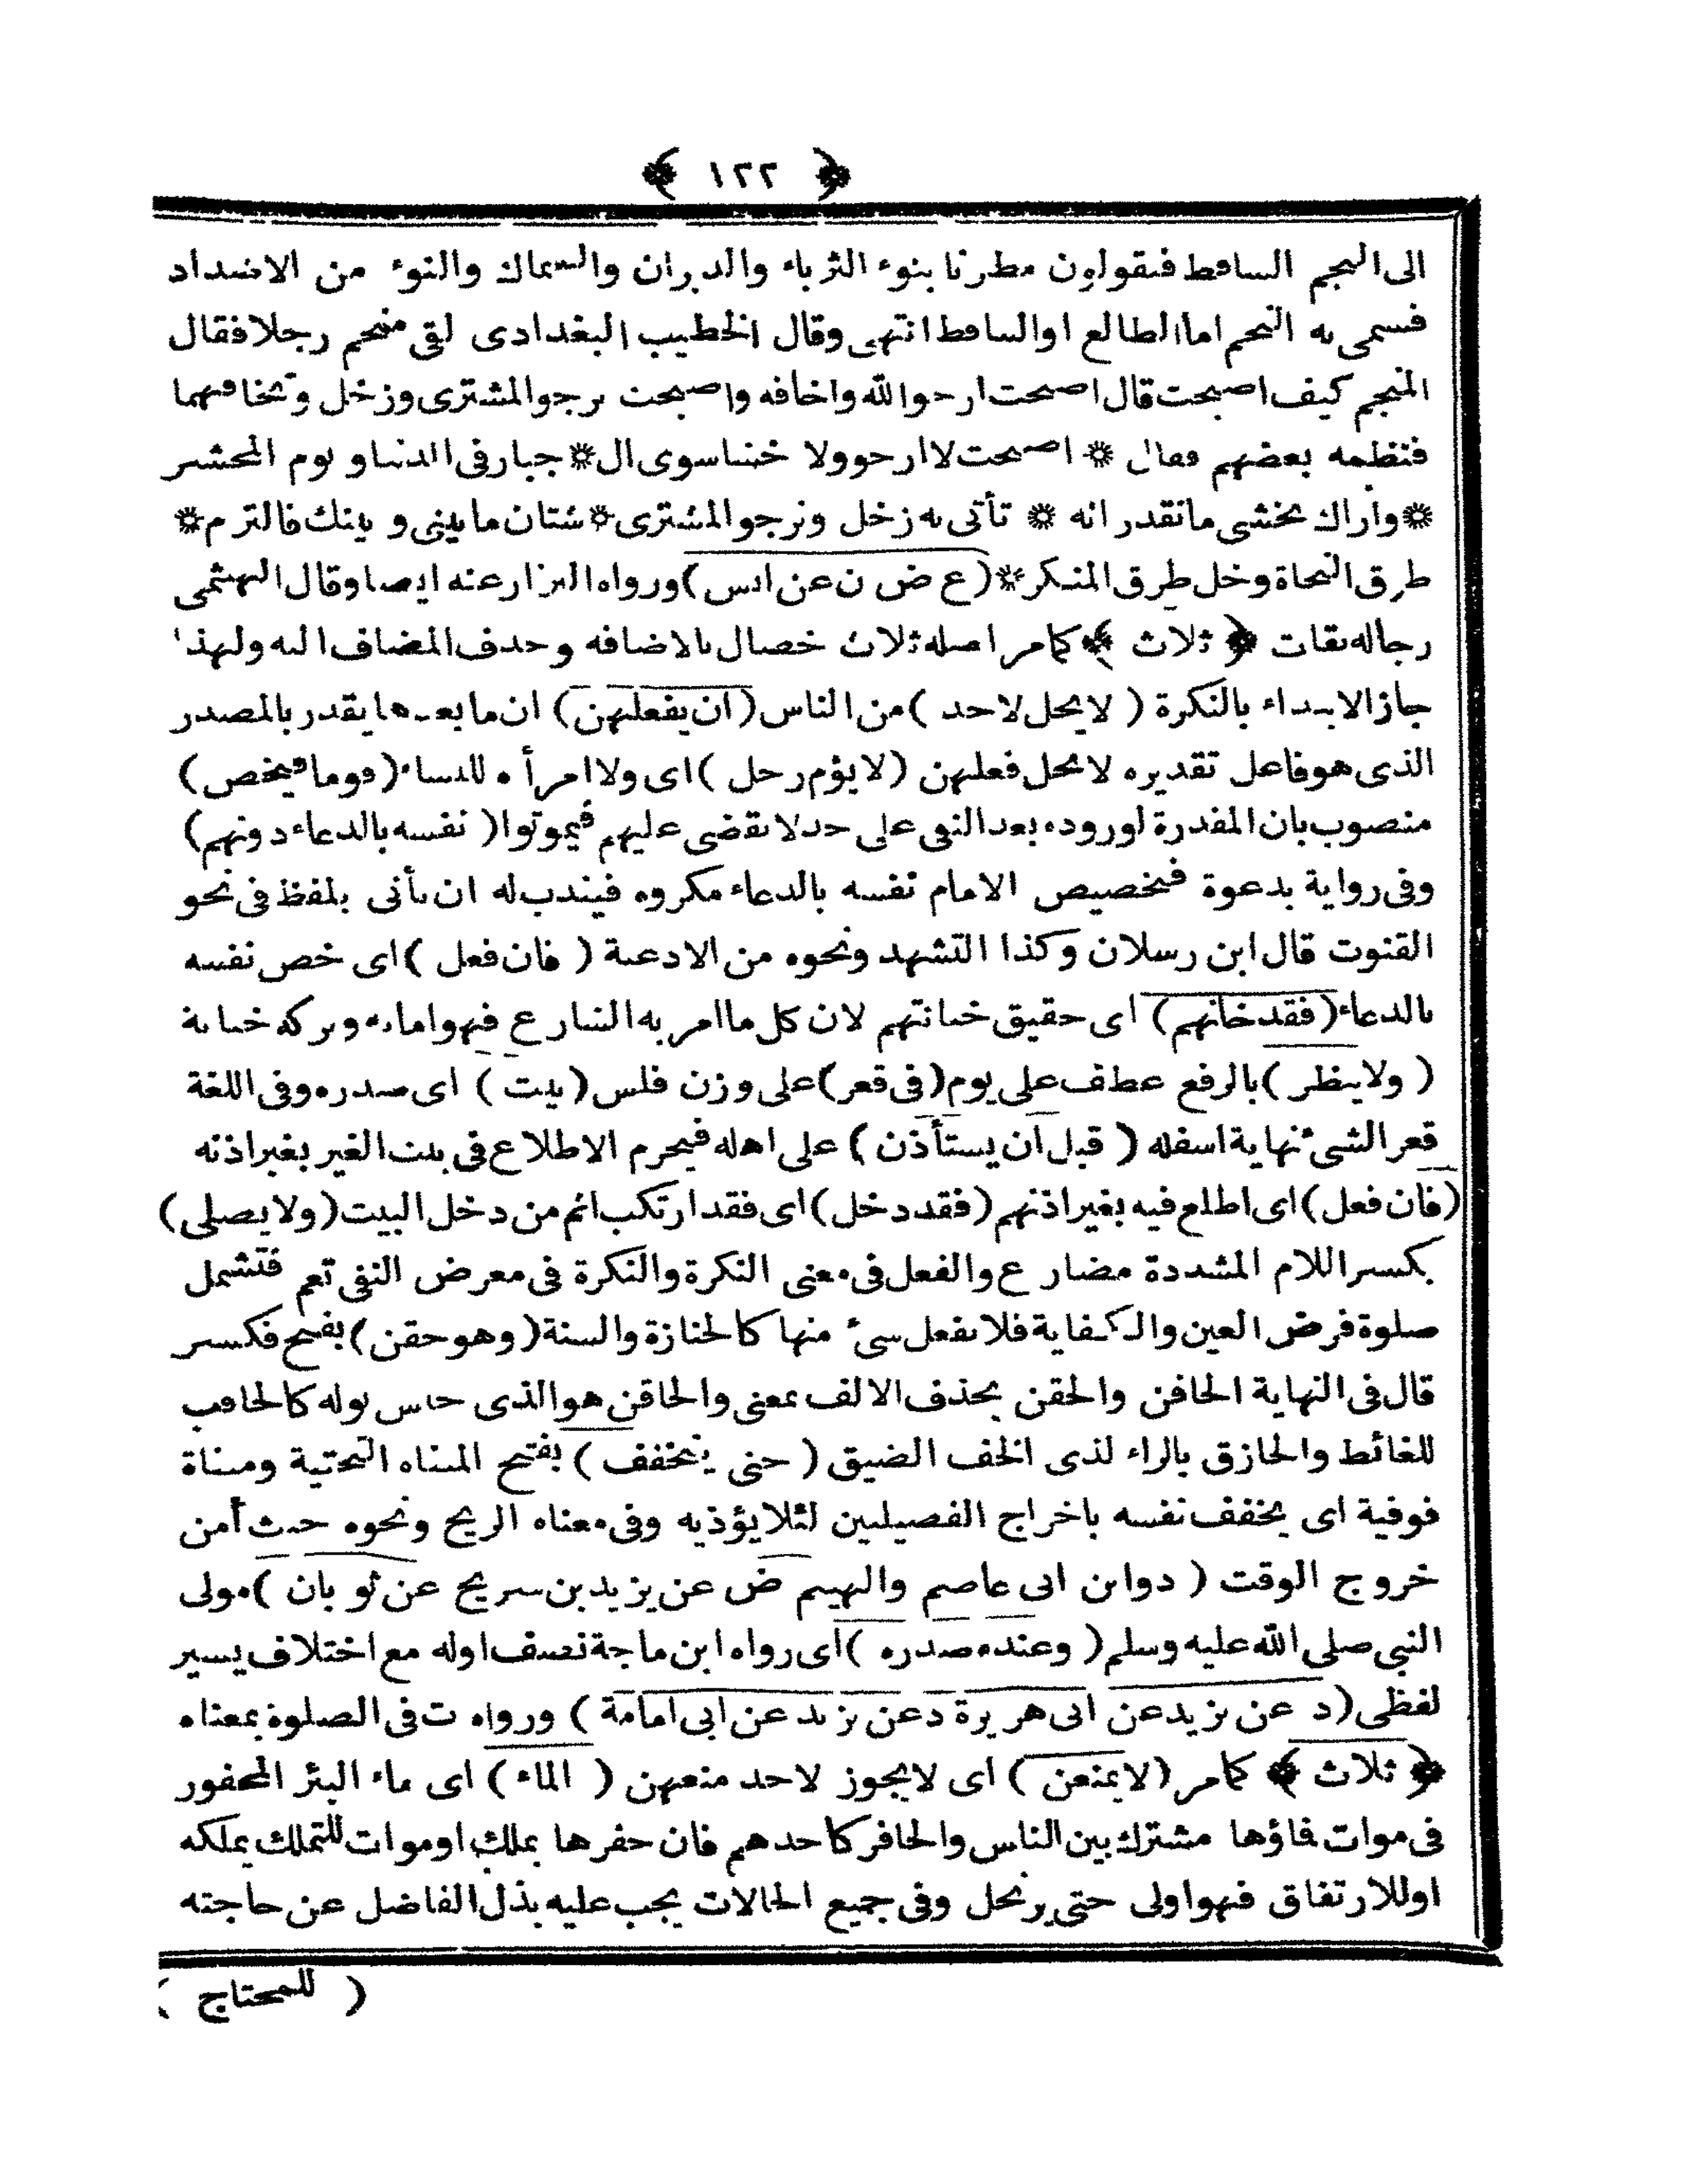 ﴿ ١٢٢ ﴾
الى النجم الساقط فيقولون مطرنا بنوء الثرياء والدبران والسماك والنوء من الاضداد
فسمى به النجم اما الطالع او الساقط انتهى وقال الخطيب البغدادى لقى منجم رجلا فقال
المنجم كيف اصبحت قال اصبحت ارجو الله واخافه واصبحت ترجو المشترى وزخل وتخافهما
فنظمه بعضهم فقال * اصبحت لا ارجو ولا خشيا سوى ال* جبار فى الدنيا و يوم المحشر
* واراك تخشى ما تقدر انه * تأتى به زخل وترجو المشترى * شتان ما بينى و بينك فالتزم *
طرق النجاة وخل طرق المنكر * (ع ض ن عن انس) ورواه البزار عنه ايضا وقال الهيثمى
رجاله ثقات ﴿ ثلاث ﴾ كمامر اصله ثلاث خصال بالاضافه وحذف المضاف اليه ولهذا
جاز الابتداء بالنكرة ( لا يحل لاحد ) من الناس (ان يفعلهن) ان ما بعدها يقدر بالمصدر
الذى هو فاعل تقديره لا يحل فعلهن (لا يؤم رجل ) اى ولا امرأة للنساء (قوما فيخص)
منصوب بان المقدرة لوروده بعد النفى على حد لا يقضى عليهم فيموتوا ( نفسه بالدعاء دونهم)
وفى رواية بدعوة فتخصيص الامام نفسه بالدعاء مكروه فيندب له ان يأتى بلفظ فى نحو
القنوت قال ابن رسلان وكذا التشهد ونحوه من الادعية ( فان فعل ) اى خص نفسه
بالدعاء (فقد خانهم) اى حقيق خيانتهم لان كل ما امر به الشارع فهو امانة وتركه خيانة
( ولا ينظر ) بالرفع عطف على يوم (فى قعر) على وزن فلس (بيت ) اى صدره وفى اللغة
قعر الشئ نهاية اسفله ( قبل ان يستأذن ) على اهله فيحرم الاطلاع فى بيت الغير بغير اذنه
(فان فعل) اى اطلع فيه بغير اذنهم (فقد دخل) اى فقد ارتكب اثم من دخل البيت (ولا يصلى)
بكسر اللام المشددة مضارع والفعل فى معنى النكرة والنكرة فى معرض النفى تعم فتشمل
صلوة فرض العين والكفاية فلا يفعل شئ منها كالجنازة والسنة ( وهو حقن ) بفتح فكسر
قال فى النهاية الحاقن والحقن بحذف الالف بمعنى والحاقن هو الذى حابس بوله كالحاقب
للغائط والحازق بالراء لذى الخف الضيق ( حتى يتخفف ) بفتح المثناه التحتية ومثناة
فوقية اى يخفف نفسه باخراج الفصيلين لئلا يؤذيه وفى معناه الريح ونحوه حيث أمن
خروج الوقت ( د وابن ابى عاصم والهيم ض عن يزيد بن سريح عن ثوبان ) مولى
النبى صلى الله عليه وسلم ( وعنده صدره ) اى رواه ابن ماجة نصف اوله مع اختلاف يسير
لفظى (د عن يزيد عن ابى هريرة د عن يزيد عن ابى امامة ) ورواه ت فى الصلوة بمعناه
﴿ ثلاث ﴾ كمامر (لا يمنعن ) اى لا يجوز لاحد منعهن ( الماء ) اى ماء البئر المحفور
فى موات فاؤها مشترك بين الناس والحافر كاحدهم فان حفرها بملك او موات للتملك يملكه
او للارتفاق فهو اولى حتى يرتحل وفى جميع الحالات يجب عليه بذل الفاضل عن حاجته
( للمحتاج )